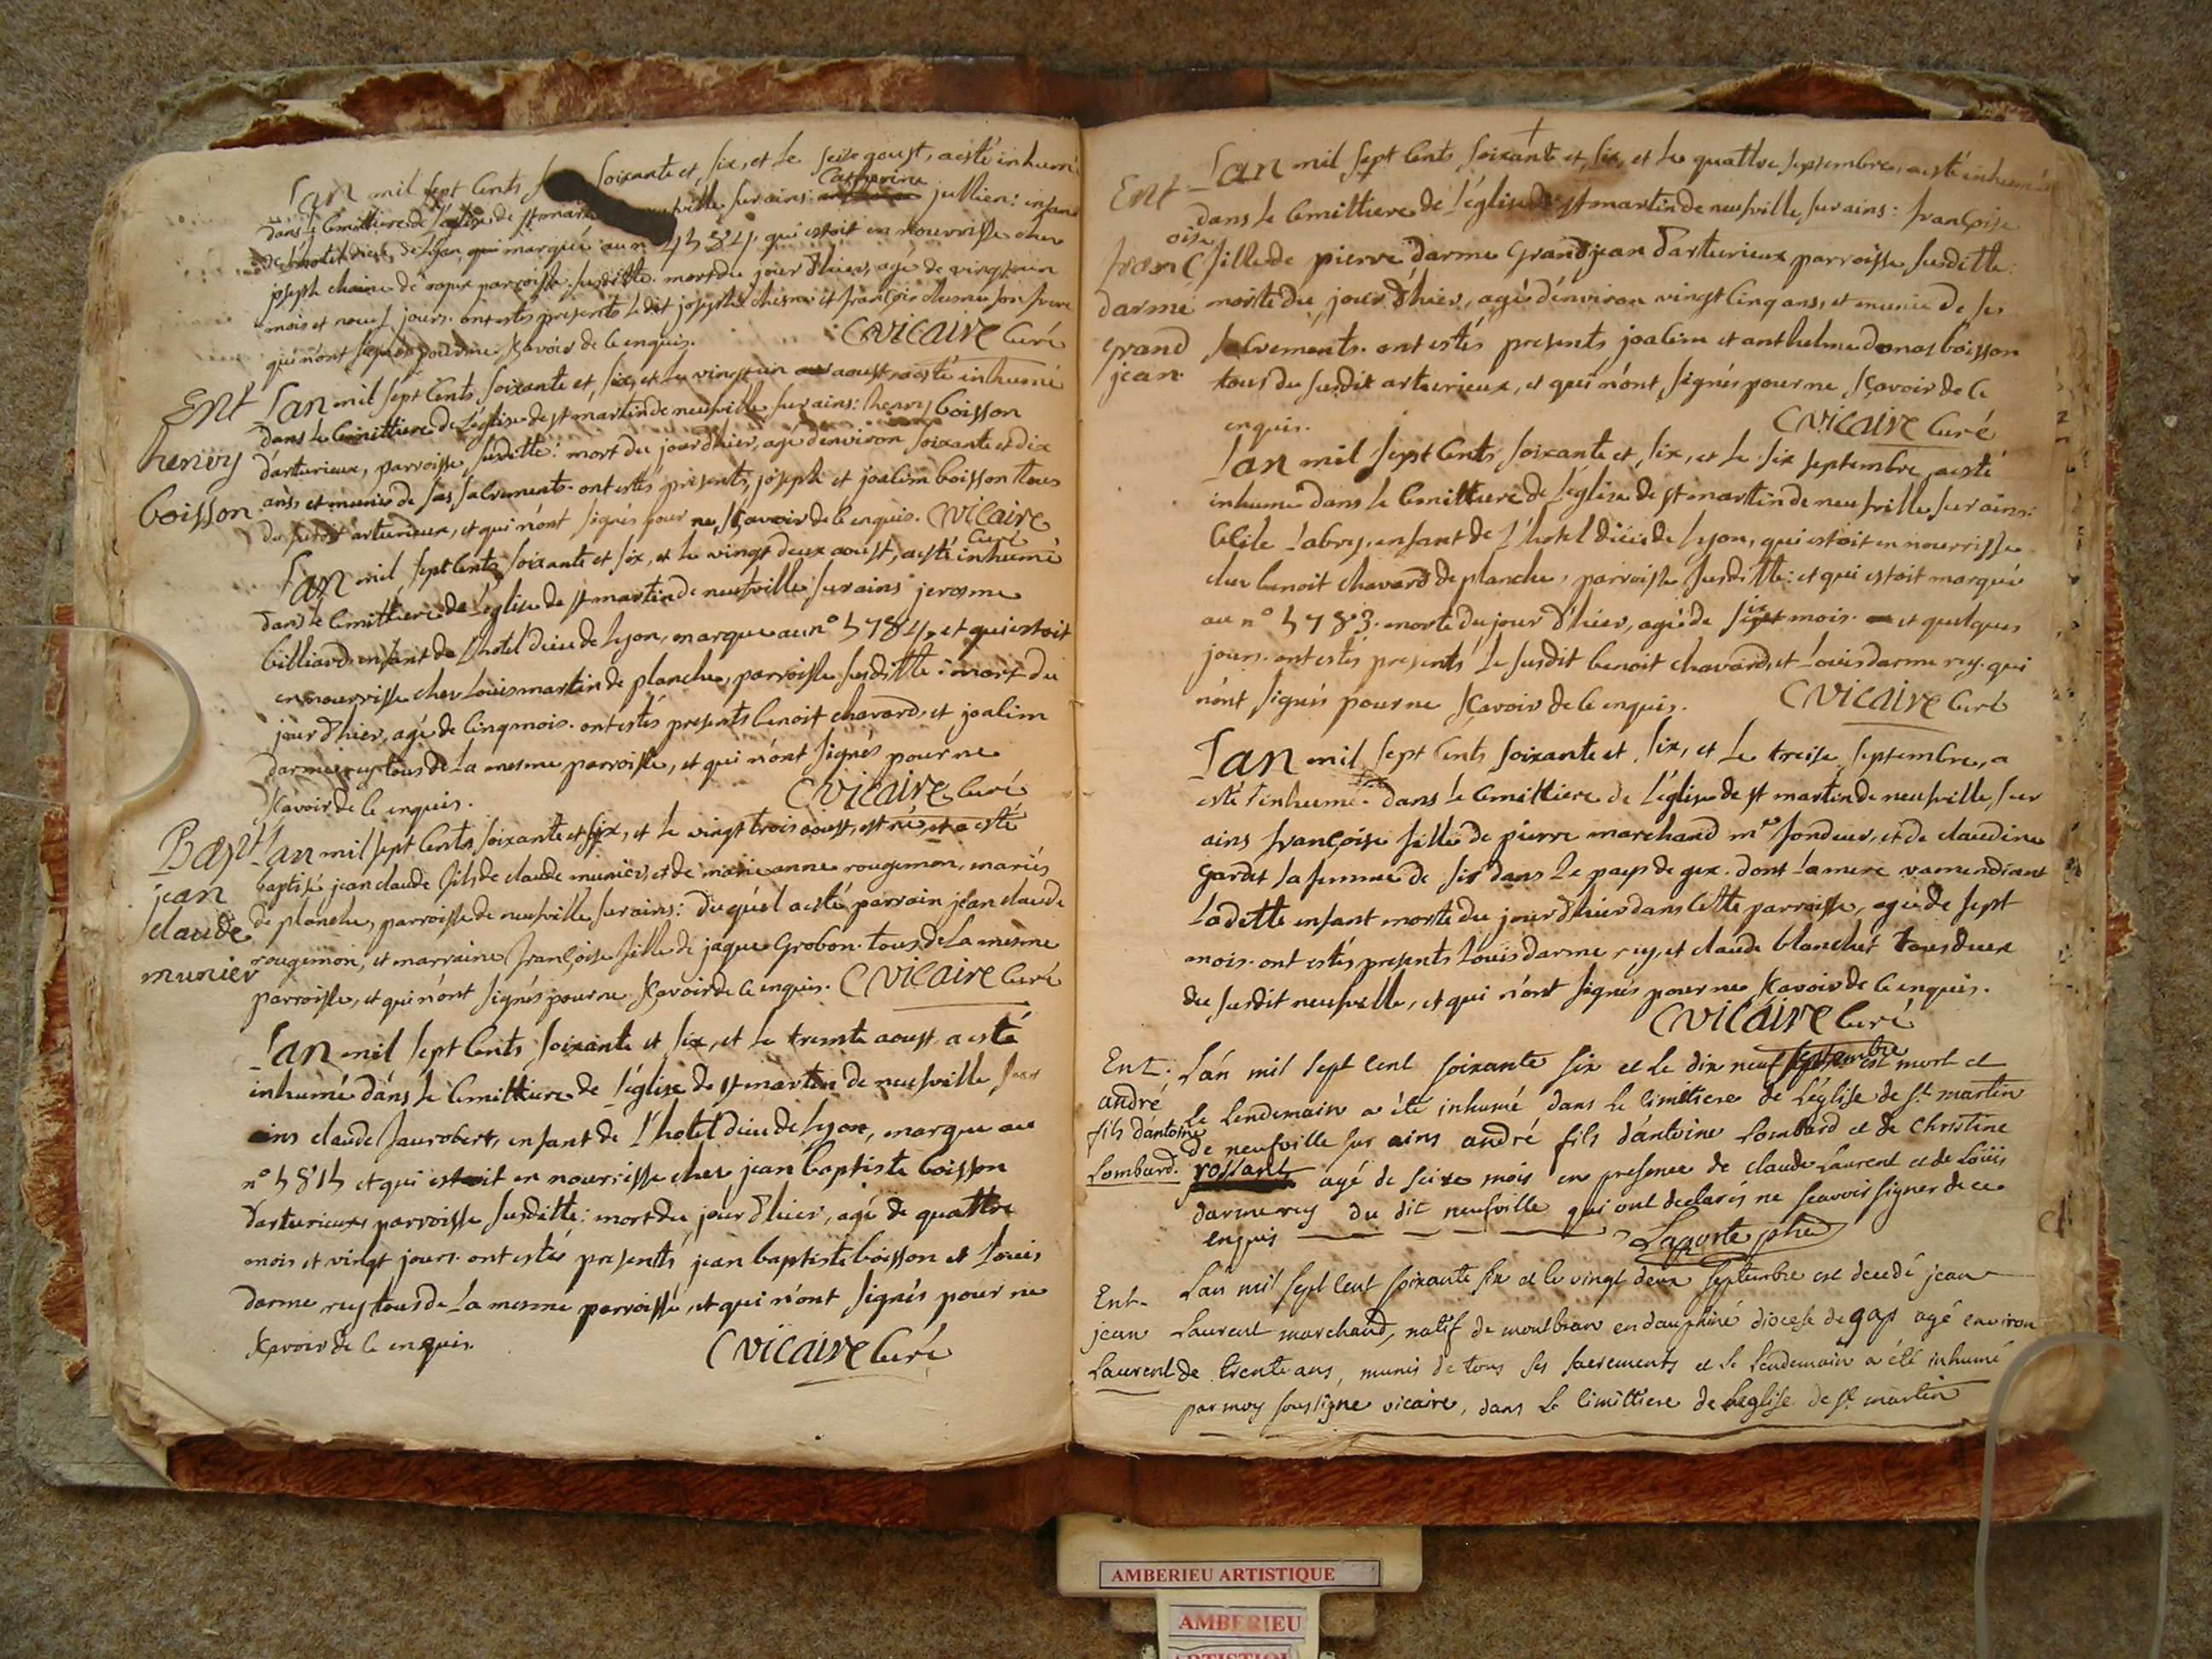 Lan mil sept cents soixante et six, et le seise aoust, a esté inhumé
dans le cimittiere de l'église de st martin neufville sur ains Catherine jullien: enfant
de l'hotel dieu de lyon, qui marquée au n° qui estoit en nourrisse cher
joseph chaine de parroisse susditte. mort du jour d'hier, agé de vingt un
mois et neuf jours. ont estés presents le dit joseph chesne et françois chesne son frere
qui n'ont signés pour ne sçavoir de ce enquis. C VICAIRE Curé
Ent
henry
boisson
Lan mil sept cents soixante et six, et le vingt un aoust a esté inhumé
dans le cimittiere de l'église de st martin de neufville sur ains: henry boisson
d'arturieux, parroisse susditte: mort du jour d'hier, agé d'environ soixante et dix
ans et munis de ses sacrements. ont estés présents, joseph et joalim boisson tous
du susdit arturieux, et qui n'ont signés pour ne sçavoir de ce enquis. C VICAIRE
Curé
Lan mil sept cents soixante et six, et le vingt deux aoust, a esté inhumé
dans le cimittiere de l'église de st martin de neufville sur ains jerosme
billiard enfant de l'hotel dieu de lyon, marque au n° 5784, et qui estoit
en nourrisse cher Louis martin de planche, parroisse susditte: mort du
jour d'hier, agé de cinq mois. ont estés presents benoit chavard, et joalim
darmerey tous de La mesme parroisse, et qui n'ont signés pour ne
sçavoir de ce enquis. C VICAIRE Curé
Bapt
jean
claude
munier
Lan mil sept cents soixante et six, et le vingt trois aoust, est né, et a esté
baptisé jean claude fils de claude munier, et de marie anne rougemon, mariés
de planche, parroisse de neufville sur ains: du quel a esté parrain jean claude
rougemon, et marraine françoise fille de jaque Grobon. tous de La mesme
parroisse, et qui n'ont signés pour ne sçavoir de ce enquis. C VICAIRE Curé
Lan mil sept cents soixante et six, et le trente aoust a esté
inhumé dans le cimittiere de l'église de st martin de neufville sur
ains claude Jaurobert, enfant de l'hotel dieu de lyon, marque au
n° 5815 et qui estoit en nourrisse cher jean baptiste boisson
d'arturieux parroisse susditte: mort du jour d'hier, agé de quattre
mois et vingt jours. ont estés presents jean baptiste boisson et Louis
darme rey tous de La mesme parroisse, et qui n'ont signés pour ne
sçavoir de ce enquis. C VICAIRE Curé
Ent
francoise
darme
grand
jean
Lan mil sept cents soixante et six, et le quattre septembre, a esté inhumé
dans le cimittiere de l'église de st martin de neufville sur ains: françoise
fille de pierre darme Grandjean d'arturieux parroisse susditte:
morte du jour d'hier, agée d'environ vingt cinq ans, et munie de ses
sacrements. ont estés presents joalim et anthelme donas boisson
tous du susdit arturieux, et qui n'ont signés pour ne sçavoir de ce
enquis. C VICAIRE Curé
Lan mil sept cents soixante et six, et le six septembre, a esté
inhumé dans le cimittiere de l'église de st martin de neufville sur ains:
Cecile Labry, enfant de l'hotel dieu de lyon, qui estoit en nourrisse
cher benoit chavard de planche, parroisse susditte: et qui estoit marqué
au n° 5783. morte du jour d'hier, agé de six mois et quelques
jours. ont estés presents le susdit benoit chavard, et Louis darme rey. qui
n'ont signés pour ne sçavoir de ce enquis. C VICAIRE Curé
Lan mil sept cents soixante et six, et le treise septembre, a
esté inhumé dans le cimittiere de l'église de st martin de neufville sur
ains françoise fille de pierre marchand mtre fondeur, et de claudine
Gardet sa femme de sis dans le pays de gex. dont La mere va mendiant
Ladette enfant morte du jour d'hier dans cette parroisse, agée de sept
mois. ont estés presents Louis darme rey, et claude blanchet tous deux
du susdit neufville, et qui n'ont signés pour ne sçavoir de ce enquis.
C VICAIRE Curé
Ent.
andré
fils d'antoine
Lombard.
L'an mil sept cent soixante six et le dix neuf septembre est mort et
le lendemain a été inhumé dans le cimitiere de l'église de st martin
de neufville sur ains andré fils d'antoine Lombard et de Christine
rossant agé de seize mois en presence de claude Laurent et de Loüis
darmerey du dit neufville qui ont declarés ne scavoir signer de ce
enquis Laporte ptre
Ent.
jean
Laurent
L'an mil sept cent soixante six et le vingt deux septembre est decedé jean
Laurent marchand, natif de montbran en dauphiné diocese de gap agé environ
de trente ans, munis de tous ses sacrements et le lendemain a été inhumé
par moy soussigne vicaire, dans le cimittiere de l'eglise de st martin
AMBERIEU ARTISTIQUE
AMBERIEU
ARTISTIQUE